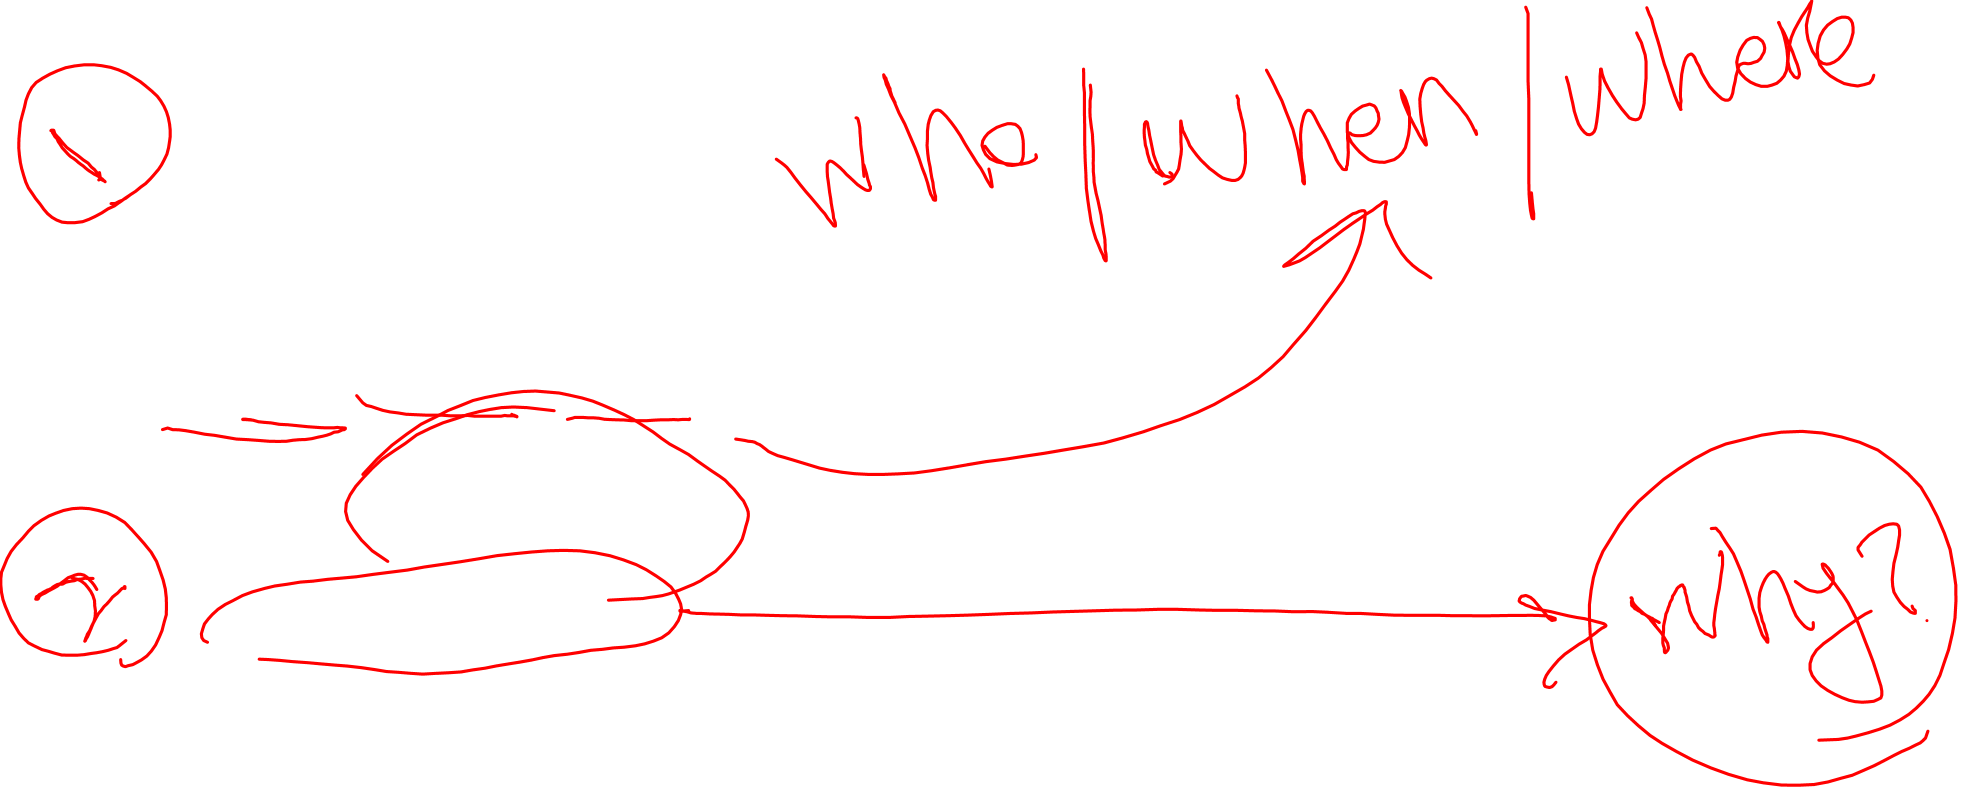 1
who | when | where
2
why?